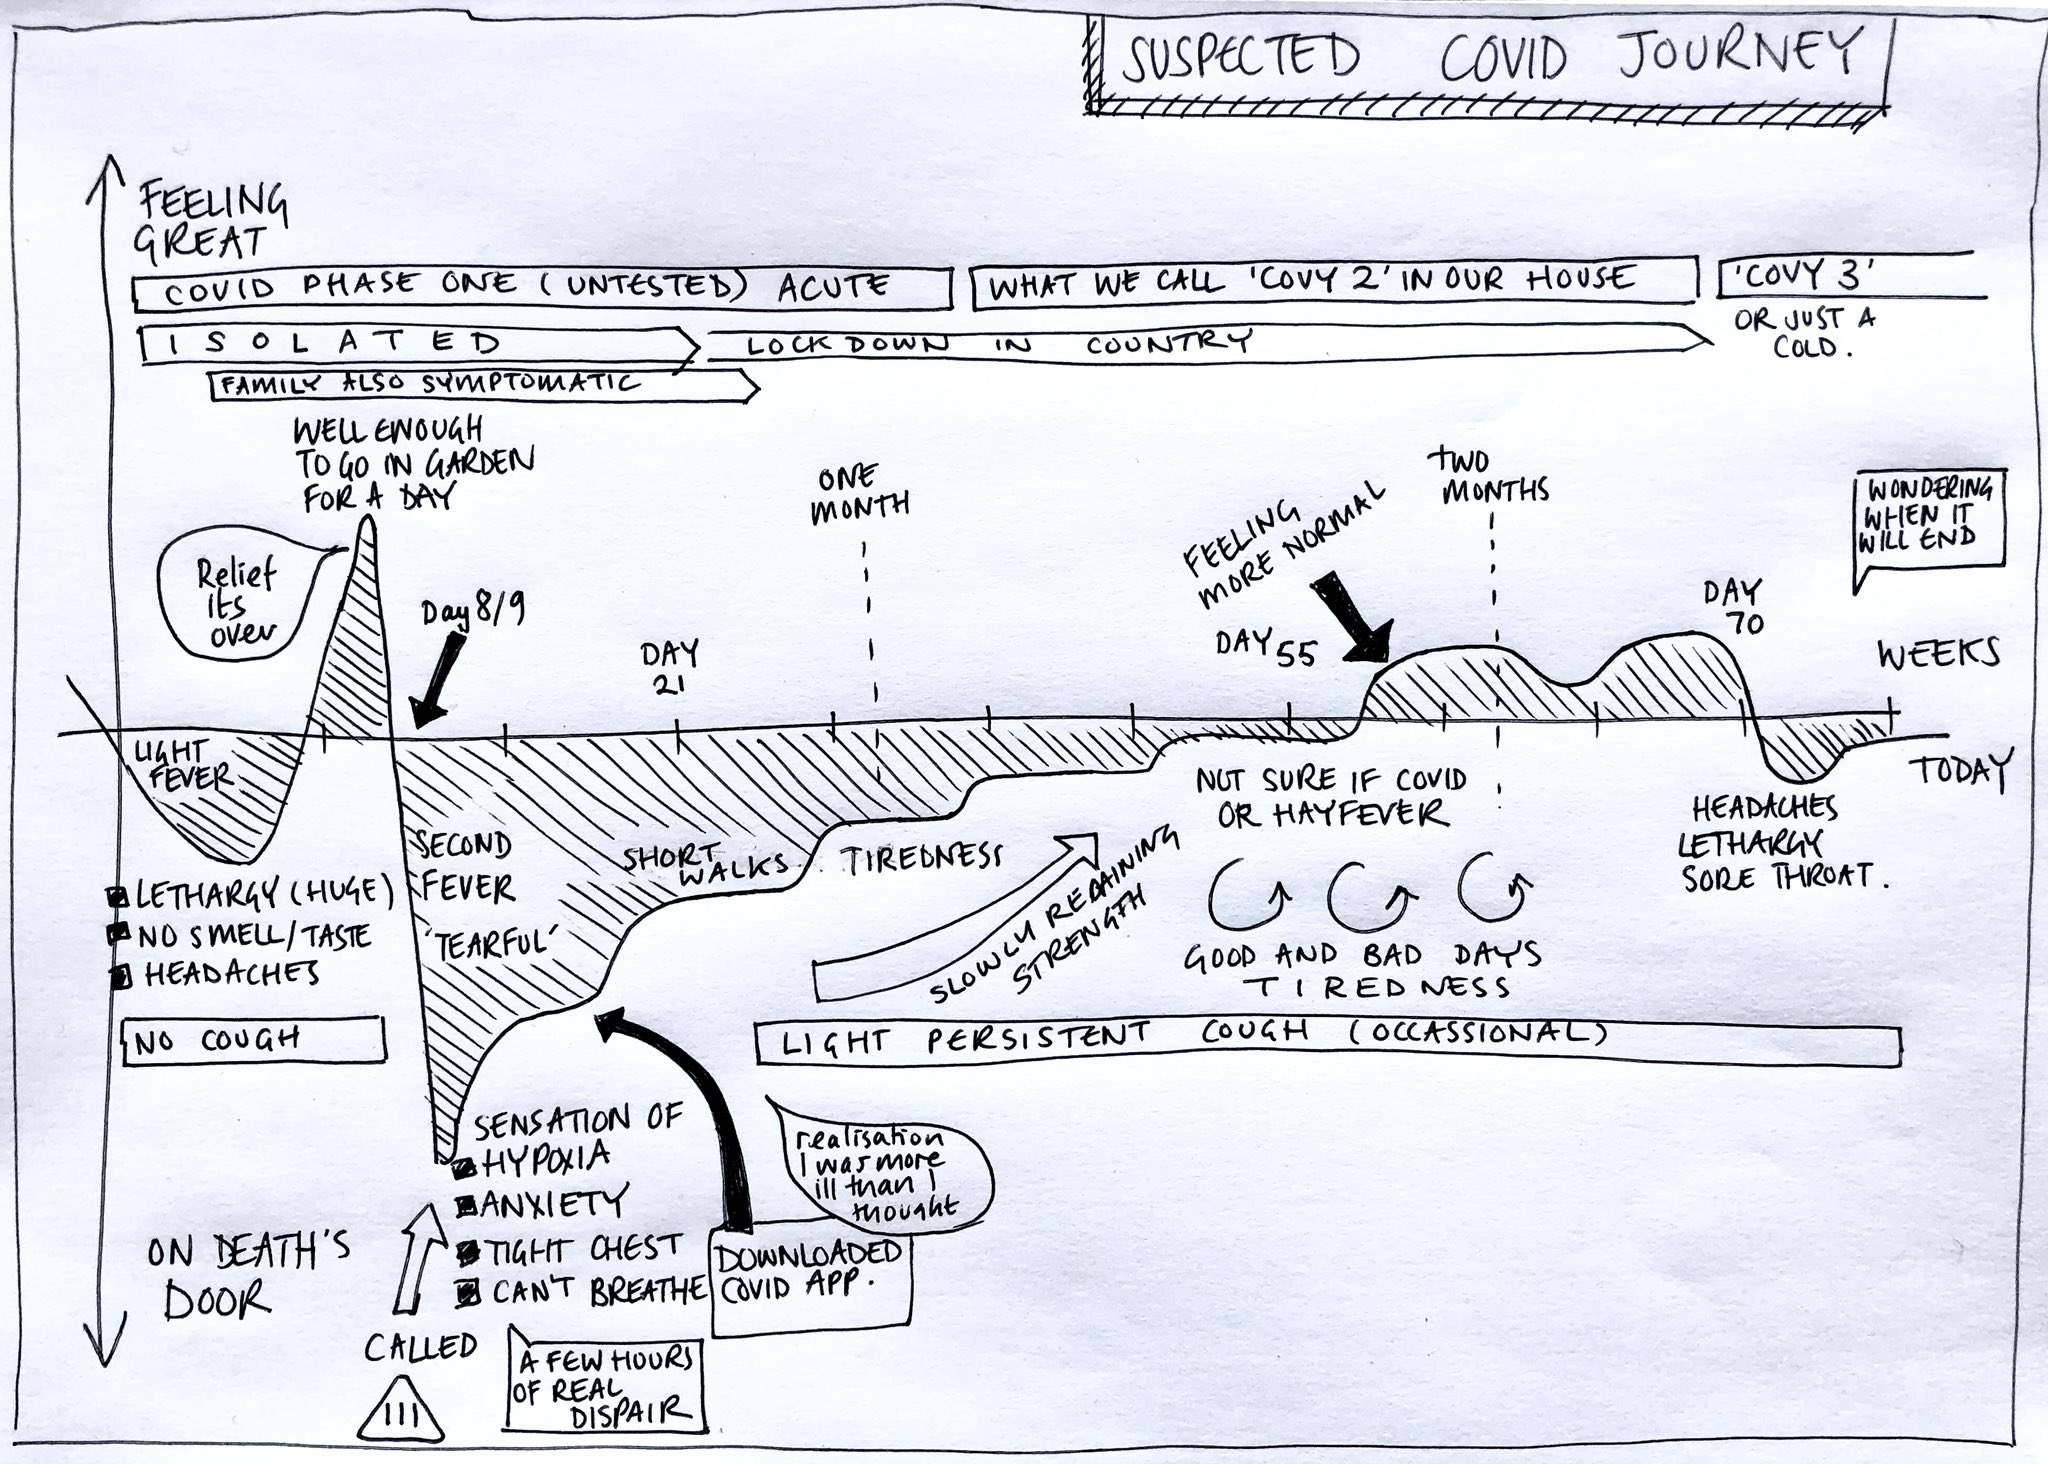 SUSPECTED COVID JOURNEY
FEELING
GREAT
COVID PHASE ONE (UNTESTED) ACUTE
WHAT WE CALL 'COVY 2' IN OUR HOUSE
'COVY 3'
OR JUST A
COLD.
ISOLATED
LOCKDOWN IN COUNTRY
FAMILY ALSO SYMPTOMATIC
WELL ENOUGH
TO GO IN GARDEN
FOR A DAY
Relief
its
over
Day 8/9
DAY
21
ONE
MONTH
FEELING
MORE NORMAL
DAY 55
TWO
MONTHS
DAY
70
WONDERING
WHEN IT
WILL END
WEEKS
TODAY
LIGHT
FEVER
LETHARGY (HUGE)
NO SMELL/TASTE
HEADACHES
NO COUGH
SECOND
FEVER
'TEARFUL'
SHORT
WALKS
TIREDNESS
SLOWLY REGAINING
STRENGTH
NOT SURE IF COVID
OR HAYFEVER
GOOD AND BAD DAYS
TIREDNESS
HEADACHES
LETHARGY
SORE THROAT.
LIGHT PERSISTENT COUGH (OCCASSIONAL)
SENSATION OF
HYPOXIA
ANXIETY
TIGHT CHEST
CAN'T BREATHE
realisation
I was more
ill than I
thought
DOWNLOADED
COVID APP.
ON DEATH'S
DOOR
CALLED
111
A FEW HOURS
OF REAL
DISPAIR